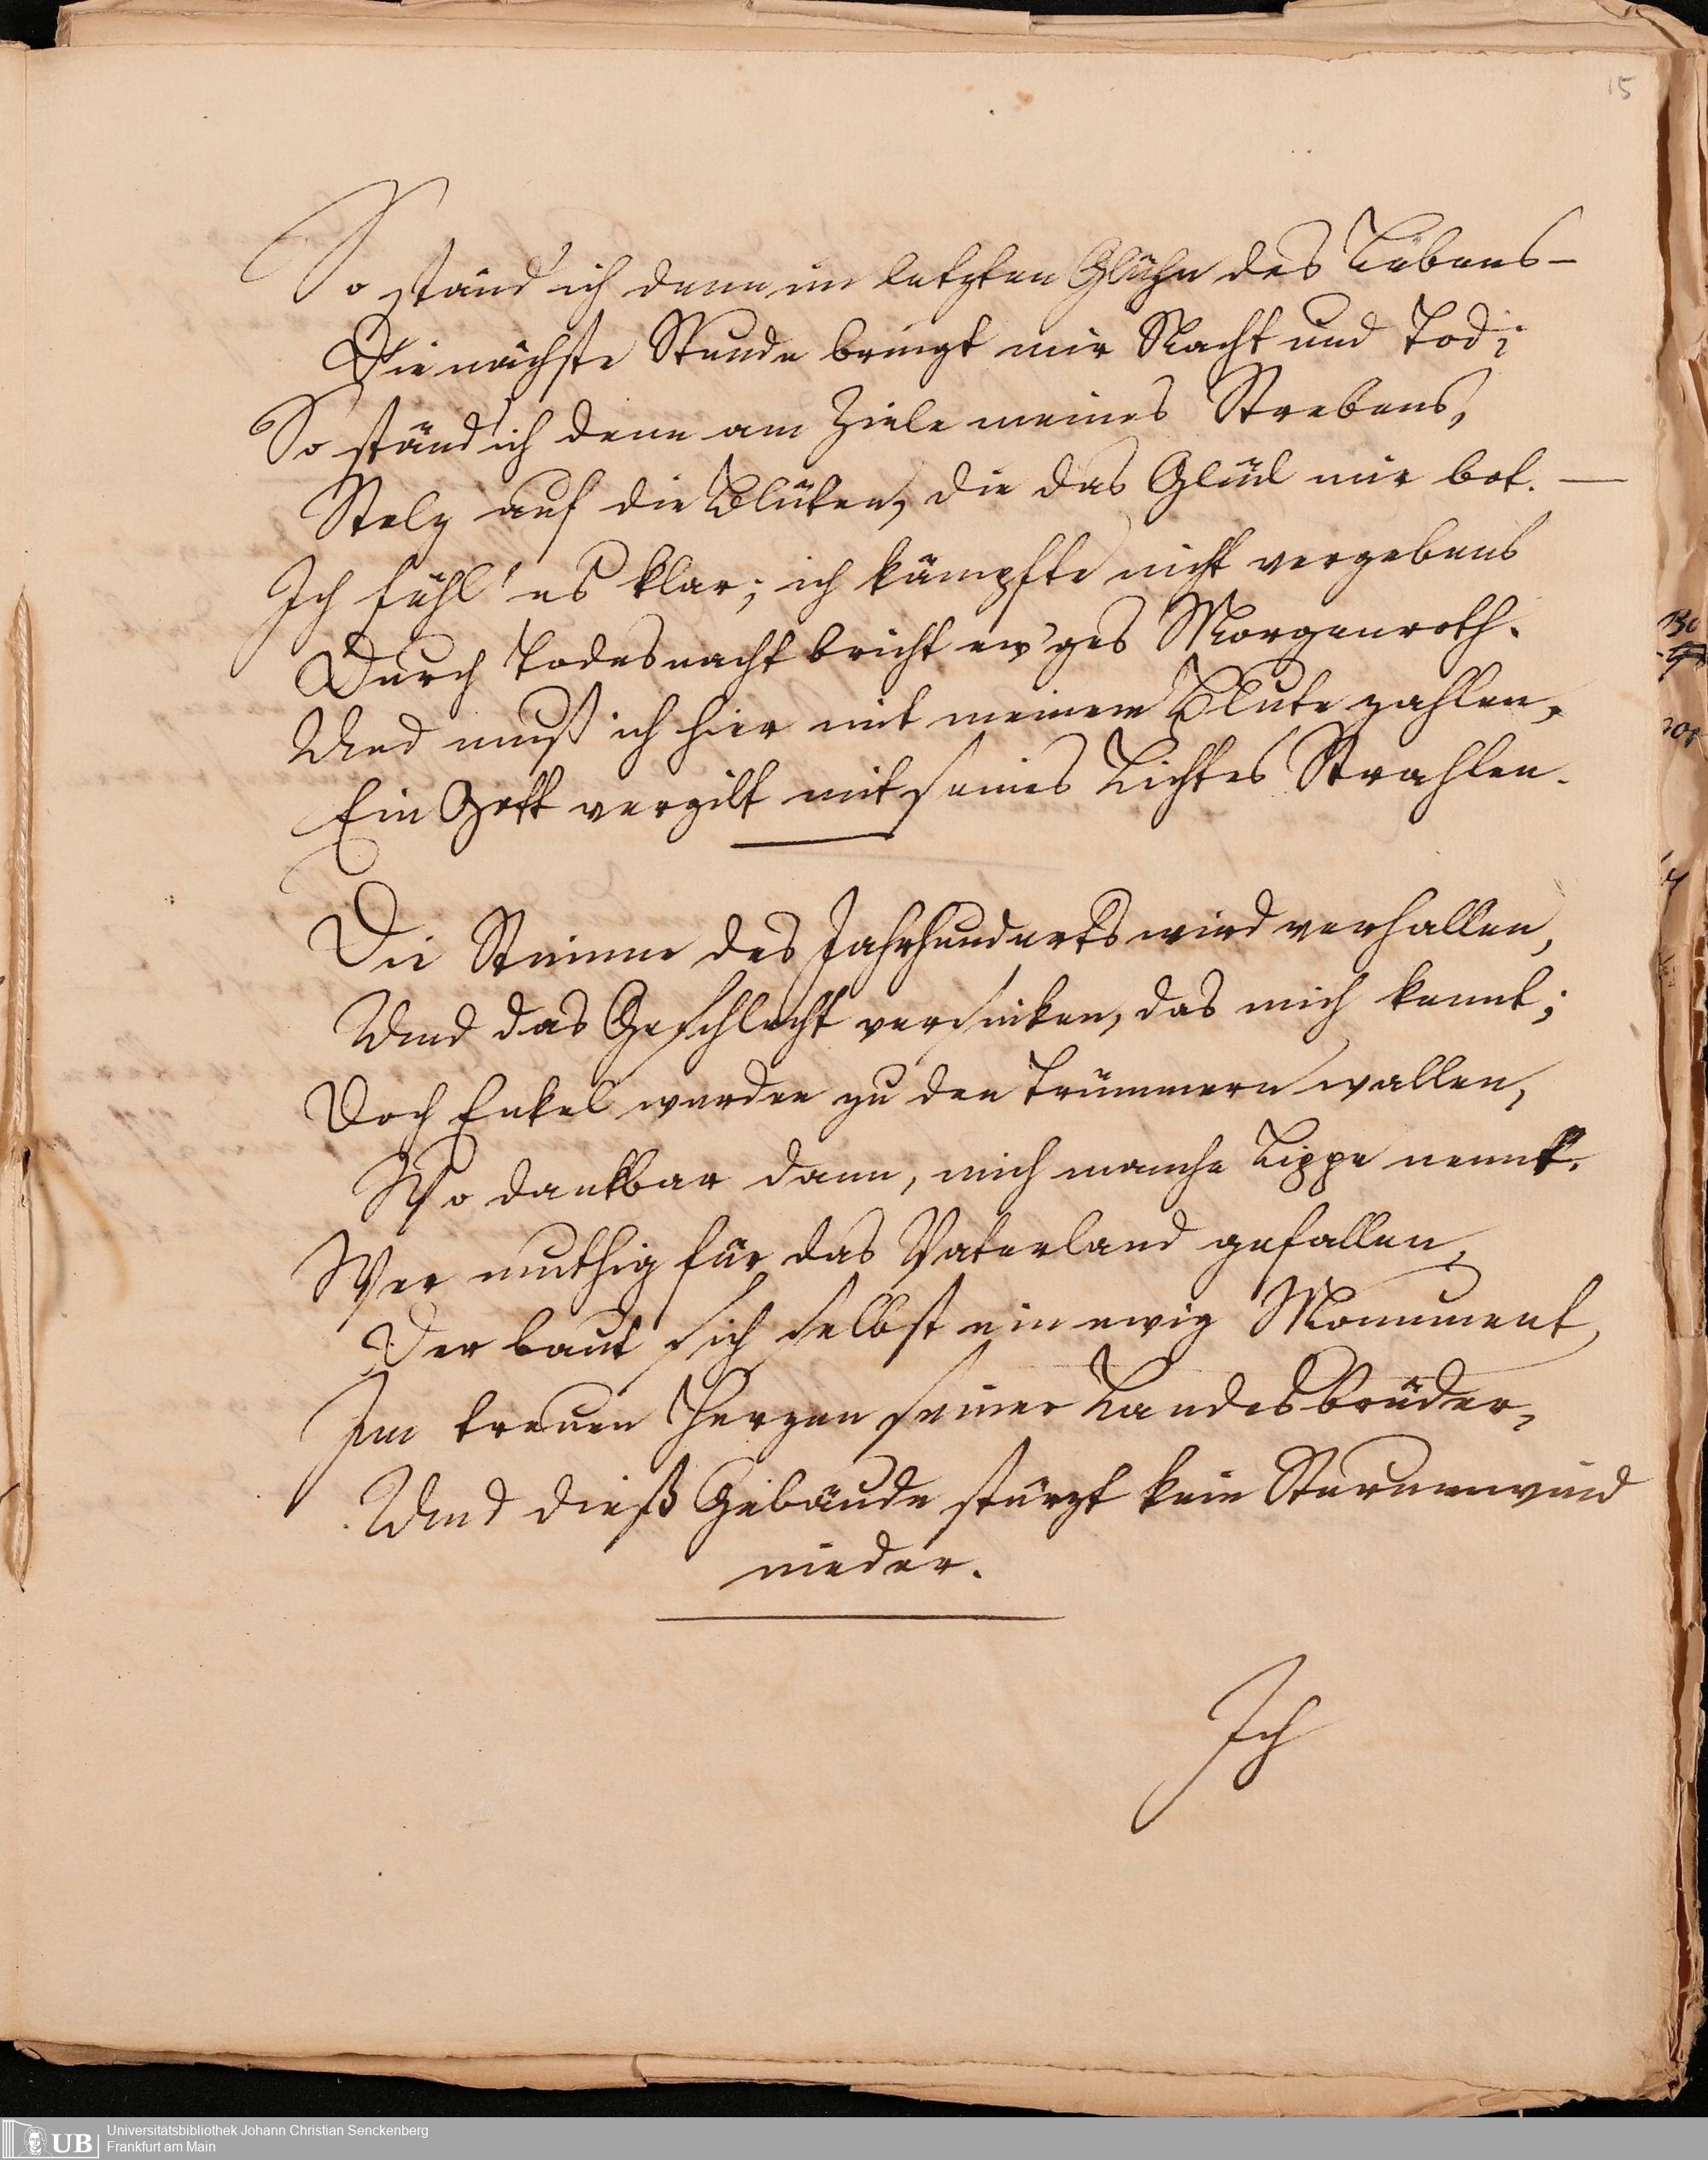 15
So stand' ich denn im letzten Glühn des Lebens –
Die nächste Stunde bringt mir Nacht und Tod;
So ständ' ich denn am Ziele meines Strebens,
Stolz auf die Blüten, die das Glück mir bot. —
Ich fühl' es klar; ich kämpfte nicht vergebens
Durch Todesnacht bricht ew'ges Morgenroth.
Und muß ich hier mit meinem Blute zahlen,
Ein Gott vergilt mit seines Lichtes Strahlen.
Die Stimme des Jahrhunderts wird verhallen,
Und das Geschlecht versinken, das mich kennt;
Doch Enkel werden zu den Trümmern wallen,
Wo dankbar dann, mich manche Lippe nennt.
Wer muthig für das Vaterland gefallen,
Der baut sich selbst ein ewig Monument,
Im treuen Herzen seiner Landesbrüder,
Und dieß Gebäude stürzt kein Sturmwind
nieder.
Ich
UB
Universitätsbibliothek Johann Christian Senckenberg
Frankfurt am Main